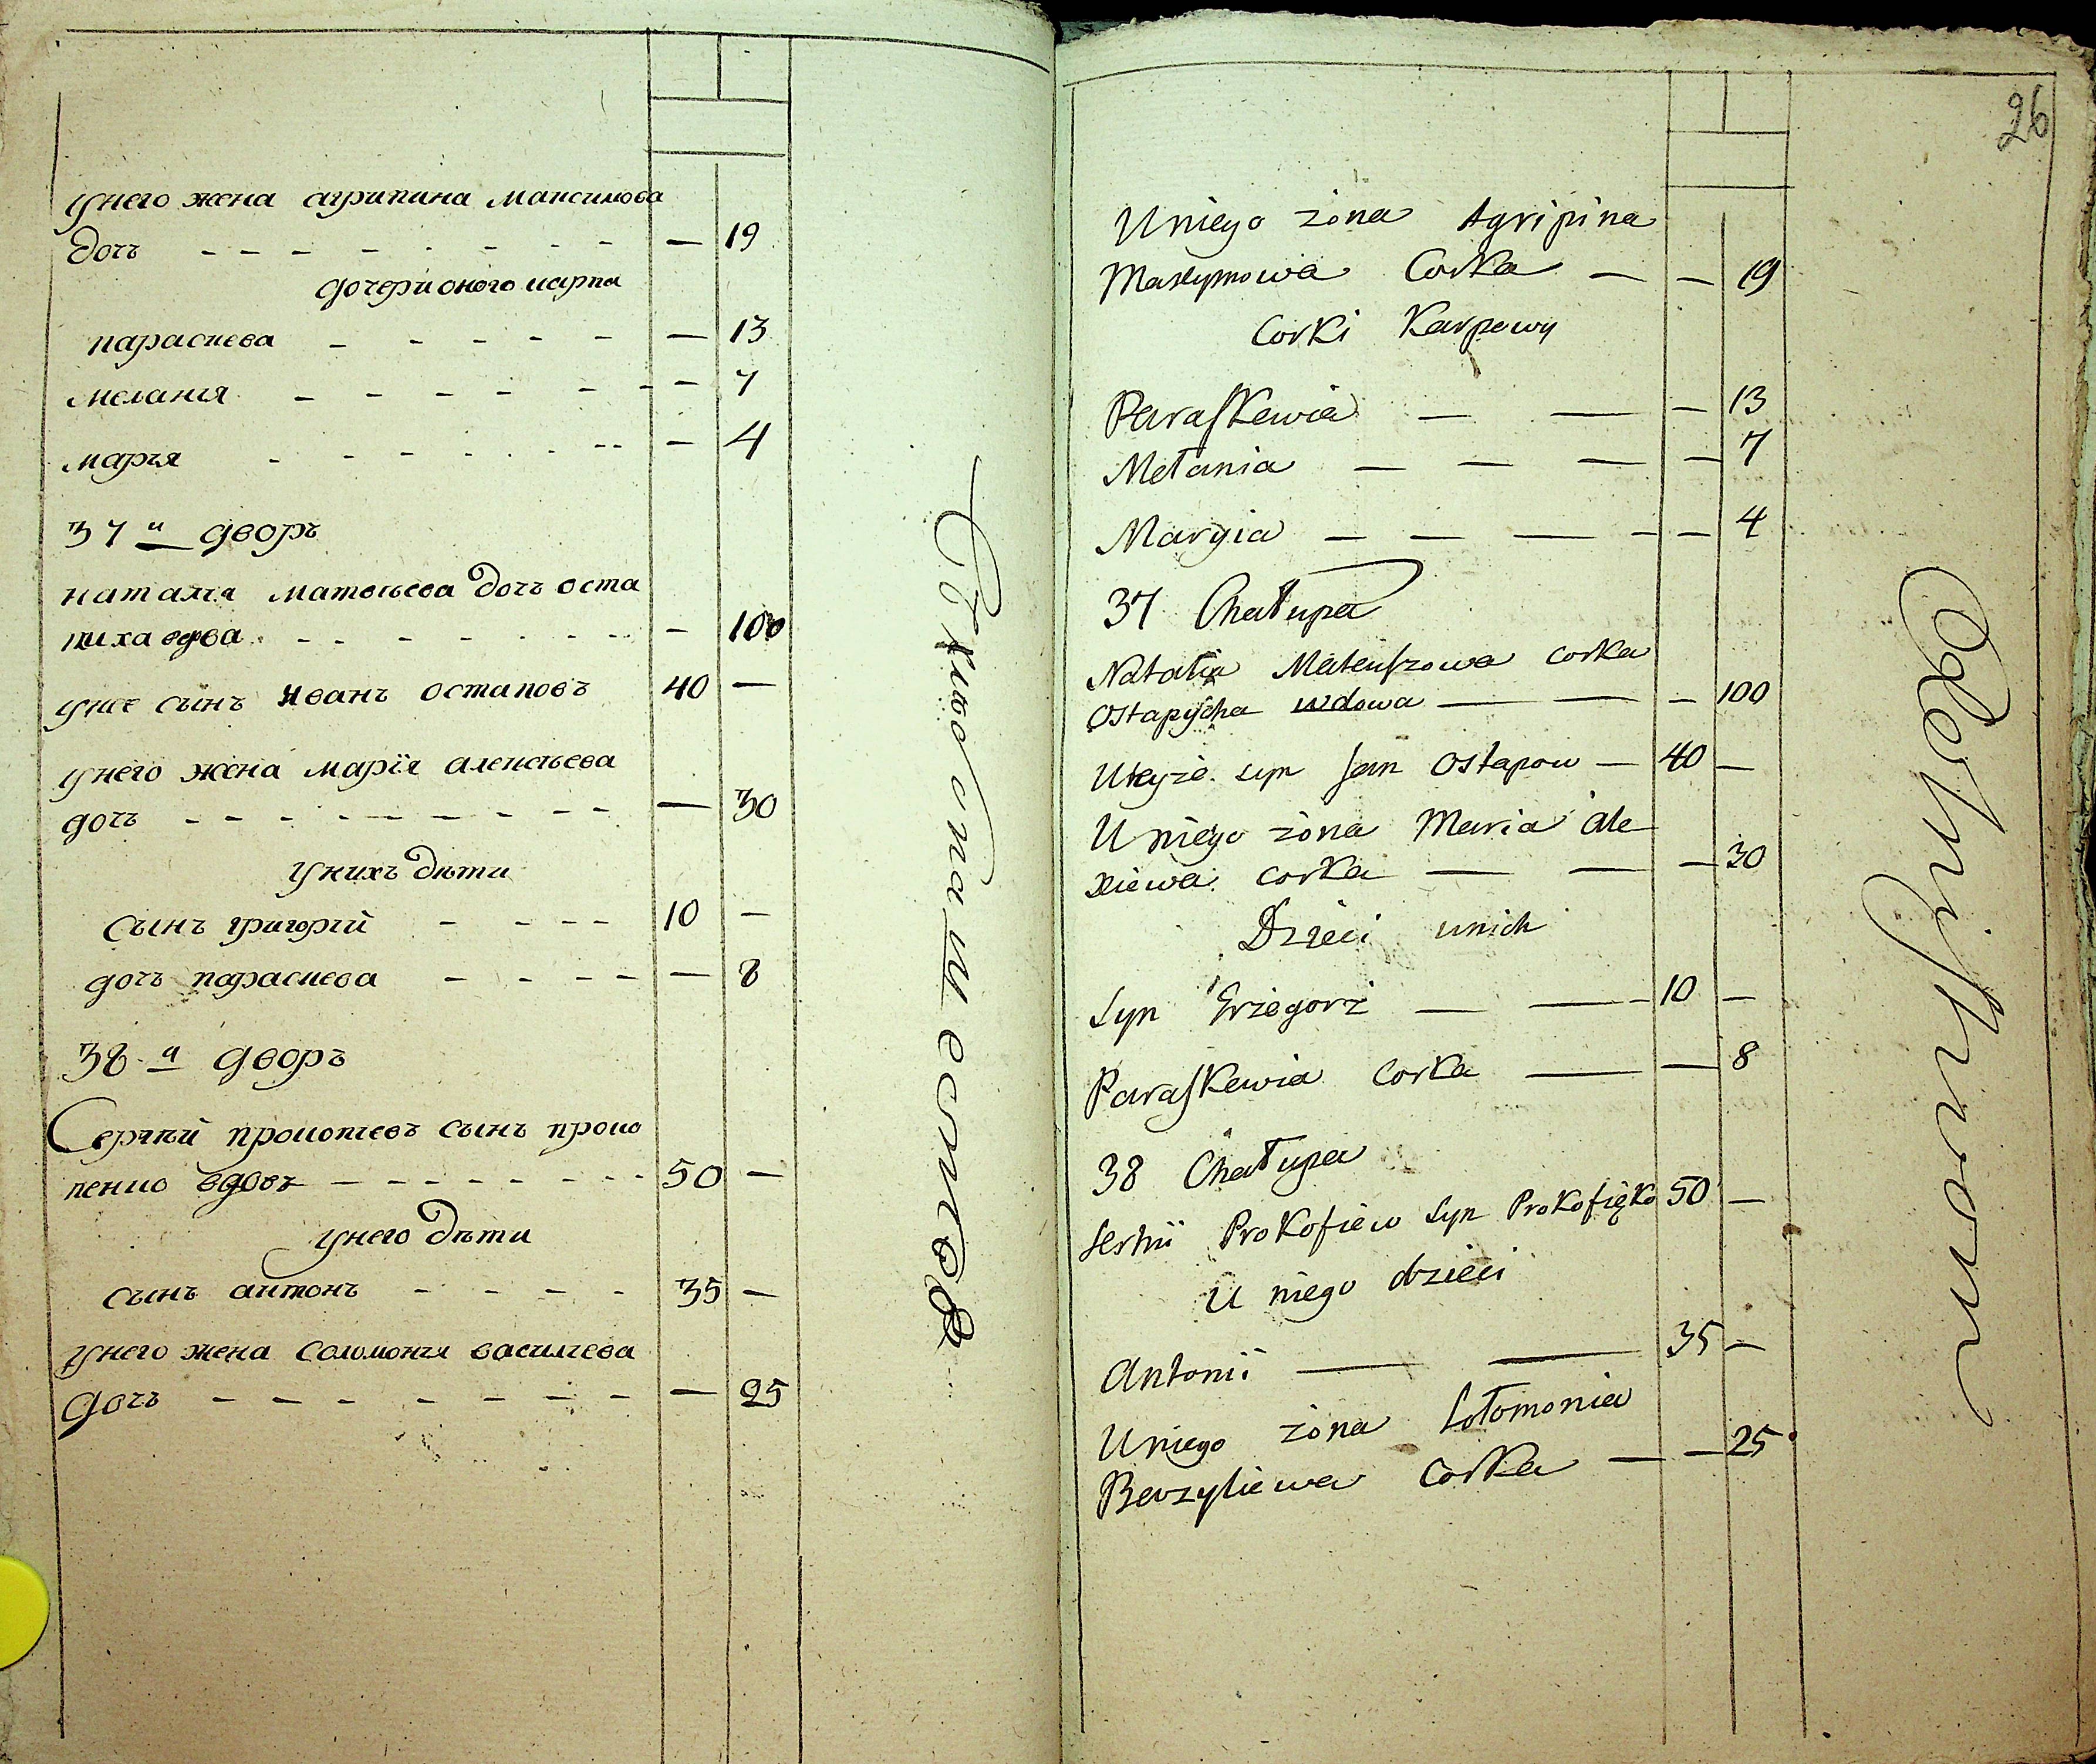 унего жена агрипина максимова
дочь — 19
дочери оного карпа
параскева — 13
меланія — 7
марія — 4
37 й дворъ
наталія матвѣева дочь оста
пиха вдва — 100
унее сынъ иванъ остаповъ 40 —
унего жена марія алексѣева
дочь — 30
унихъ дѣти
сынъ григорій 10 —
дочь параскева — 8
38 й дворъ
Сергѣй прокопіевъ сынъ проко
пенко вдовъ 50 —
унего дѣти
сынъ антонъ 35 —
унего жена соломонія василіева
дочь — 25
26
Uniego żona Agripina
Maxymowa Corka — 19
Corki Karpowy
Paraskewia — 13
Mełania — 7
Maryia — 4
37 Chałupa
Natalia Mateuszowa corka
Ostapycha wdowa — 100
Uteyże syn Jan Ostapow 40 —
U niego żona Maria Ale
xiewa corka — 30
Dzieci unich
Syn Grzegorz 10 —
Paraskewia Corka — 8
38 Chałupa
Serhii Prokofiew Syn Prokofięko 50 —
U niego dzieci
Antonii 35 —
Uniego żona Sołomonia
Bazyliewa Corka — 25